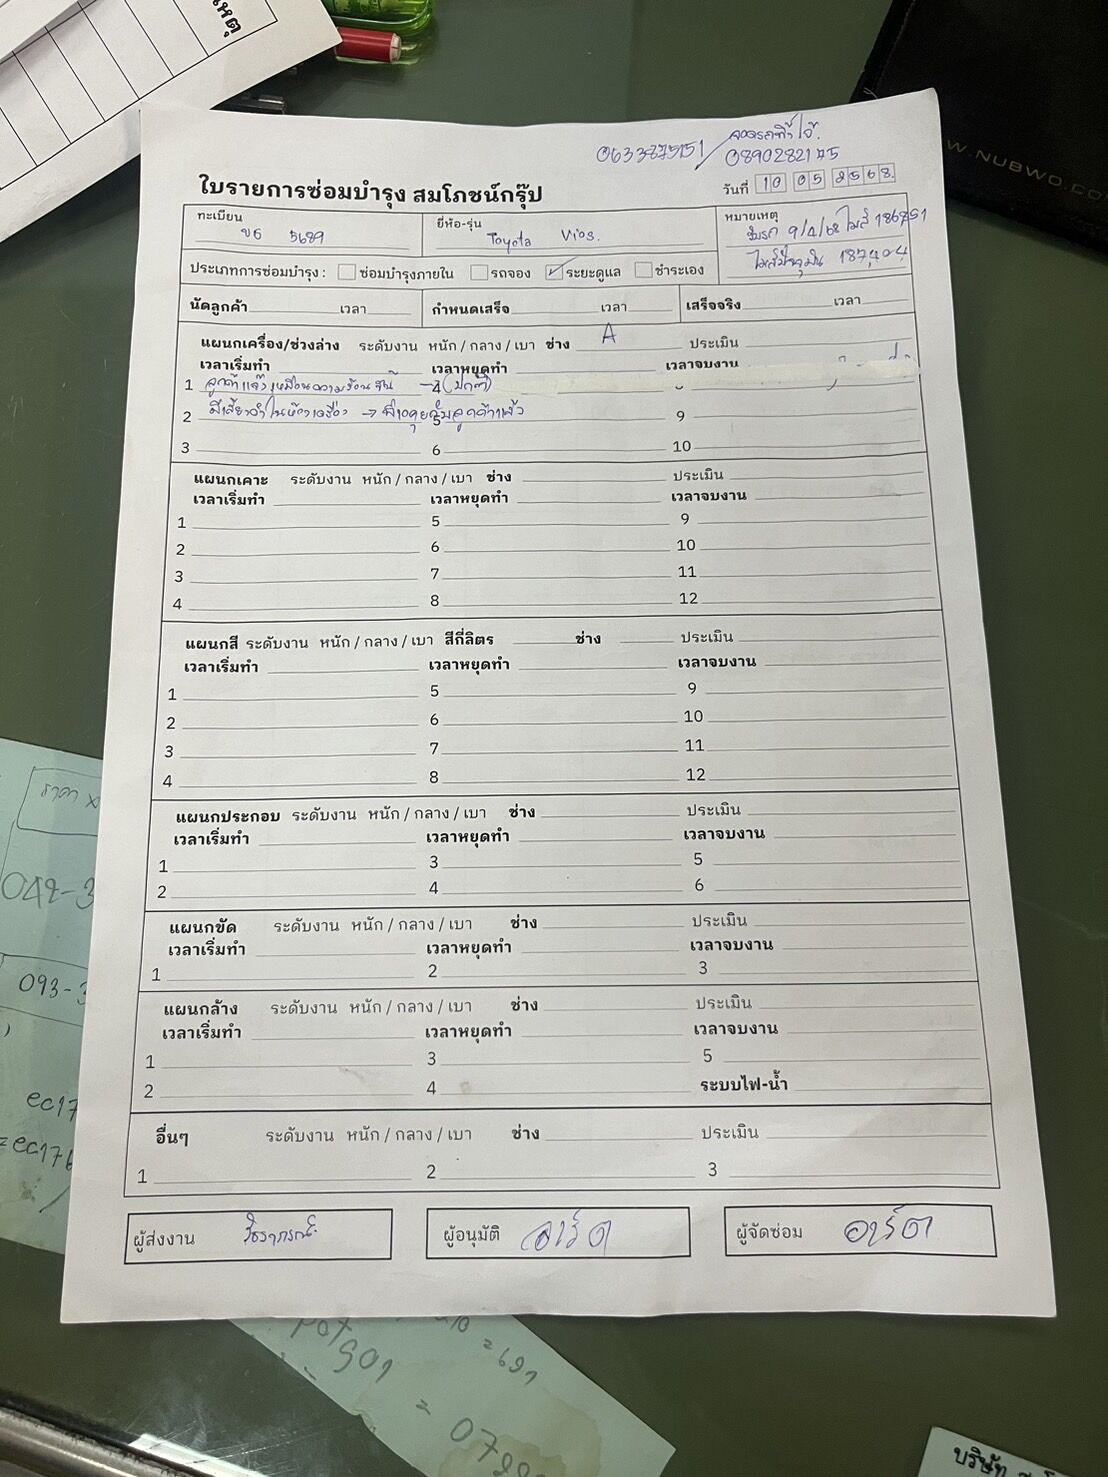 เหตุ
W.NUBWO.CO
จอดรถทิ้งไว้.
0633875151 / 0890282175
ใบรายการซ่อมบำรุง สมโภชน์กรุ๊ป
วันที่ 10 05 2568
ทะเบียน ขธ 5689 ยี่ห้อ-รุ่น Toyota Vios. หมายเหตุ รับรถ 9/4/68 ไมล์ 186751
ไมล์ปัจจุบัน 187,404
ประเภทการซ่อมบำรุง : ซ่อมบำรุงภายใน รถจอง ระยะดูแล ชำระเอง
นัดลูกค้า เวลา กำหนดเสร็จ เวลา เสร็จจริง เวลา
แผนกเครื่อง/ช่วงล่าง ระดับงาน หนัก / กลาง / เบา ช่าง A ประเมิน
เวลาเริ่มทำ เวลาหยุดทำ เวลาจบงาน
1 ลูกค้าแจ้งเหมือนความร้อนขึ้น → 4 (ปกติ)
2 มีเสียงดังในห้องเครื่อง → 5 คุยกับลูกค้าแล้ว 9
3 6 10
แผนกเคาะ ระดับงาน หนัก / กลาง / เบา ช่าง ประเมิน
เวลาเริ่มทำ เวลาหยุดทำ เวลาจบงาน
1 5 9
2 6 10
3 7 11
4 8 12
แผนกสี ระดับงาน หนัก / กลาง / เบา สีกี่ลิตร ช่าง ประเมิน
เวลาเริ่มทำ เวลาหยุดทำ เวลาจบงาน
1 5 9
2 6 10
3 7 11
4 8 12
แผนกประกอบ ระดับงาน หนัก / กลาง / เบา ช่าง ประเมิน
เวลาเริ่มทำ เวลาหยุดทำ เวลาจบงาน
1 3 5
2 4 6
แผนกขัด ระดับงาน หนัก / กลาง / เบา ช่าง ประเมิน
เวลาเริ่มทำ เวลาหยุดทำ เวลาจบงาน
1 2 3
แผนกล้าง ระดับงาน หนัก / กลาง / เบา ช่าง ประเมิน
เวลาเริ่มทำ เวลาหยุดทำ เวลาจบงาน
1 3 5
2 4 ระบบไฟ-น้ำ
อื่นๆ ระดับงาน หนัก / กลาง / เบา ช่าง ประเมิน
1 2 3
ผู้ส่งงาน ผู้อนุมัติ อาร์ต ผู้จัดซ่อม อาร์ต
ราคา x
042-3
093-3
ec17
=ec176
= 691
901
= 0788
บริษัท